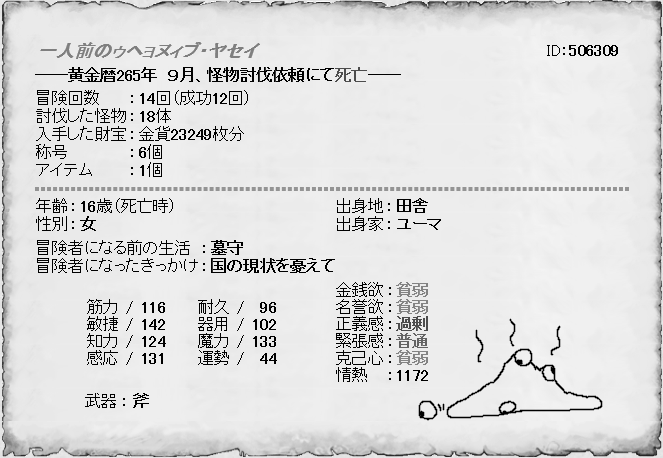 一人前のゥヘョヌィブ・ヤセイ
ID：506309
――黄金暦265年 9月、怪物討伐依頼にて死亡――
冒険回数　：14回（成功12回）
討伐した怪物：18体
入手した財宝：金貨23249枚分
称号　：6個
アイテム　：1個
年齢：16歳（死亡時）　出身地：田舎
性別：女　出身家：ユーマ
冒険者になる前の生活 ：墓守
冒険者になったきっかけ：国の現状を憂えて
金銭欲：貧弱
筋力 / 116　耐久 / 96　名誉欲：貧弱
敏捷 / 142　器用 / 102　正義感：過剰
知力 / 124　魔力 / 133　緊張感：普通
感応 / 131　運勢 / 44　克己心：貧弱
情熱　：1172
武器：斧